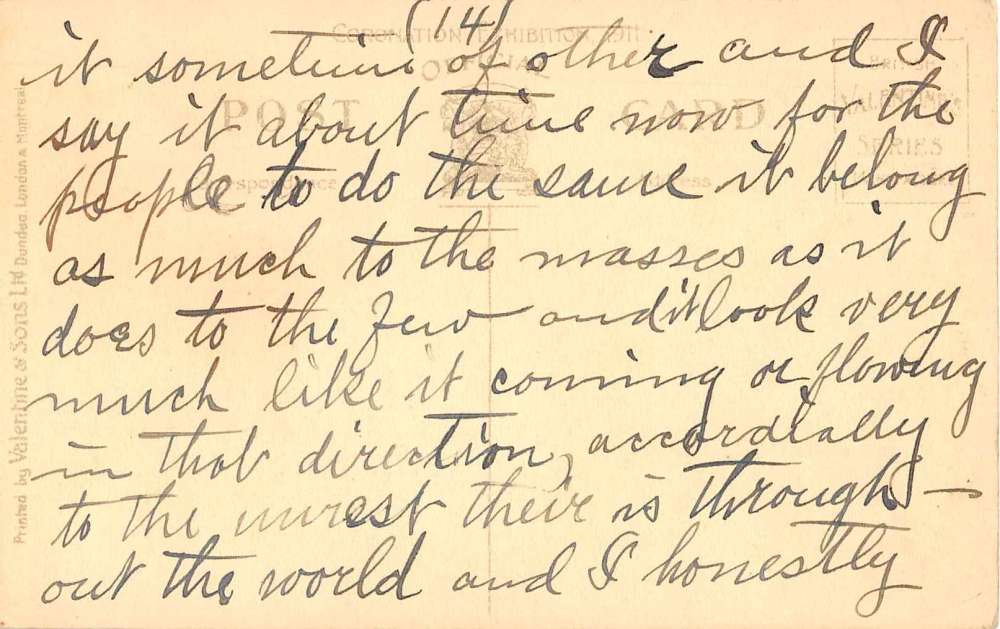 (14)
CORONATION EXHIBITION, 1911
OFFICIAL
POST CARD
BRITISH
VALENTINE'S
SERIES
Correspondence
Address
Printed by Valentine & Sons Ltd Dundee, London & Montreal
it sometime of other and I
say it about time now for the
people to do the same it belong
as much to the masses as it
does to the few and it look very
much like it coming or flowing
in that direction, accordially
to the unrest their is through—
out the world and I honestly